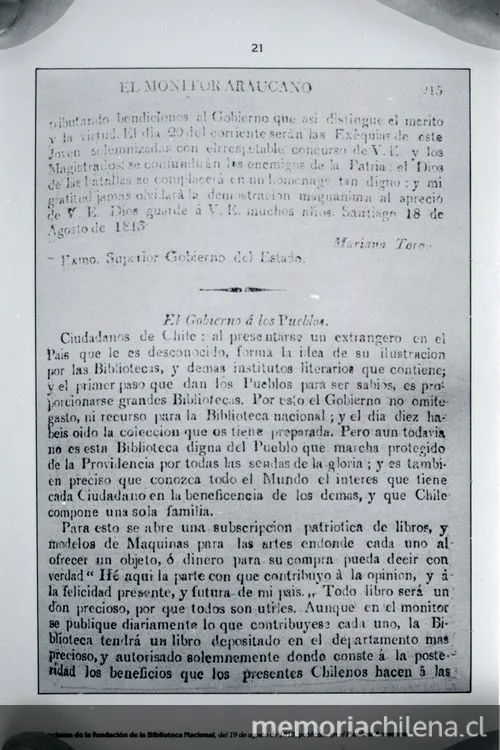 21
EL MONITOR ARAUCANO 215
tributando bendiciones al Gobierno que asi distingue el merito
y la virtud. El dia 20 del corriente serán las Exéquias de este
Joven solemnizadas con el respetable concurso de V. E. y los
Magistrados: se confundirán los enemigos de la Patria: el Dios
de las batallas se complacerá en un homenage tan digno; y mi
gratitud jamas olvidará la demostracion magnanima al aprecio
de V. E. Dios guarde á V. E. muchos años. Santiago 18 de
Agosto de 1813
Mariana Toro.
Exmo. Superior Gobierno del Estado.
El Gobierno á los Pueblos.
Ciudadanos de Chile: al presentarse un extrangero en el
Pais que le es desconocido, forma la idea de su ilustracion
por las Bibliotecas, y demas institutos literarios que contiene;
y el primer paso que dan los Pueblos para ser sabios, es pro-
porcionarse grandes Bibliotecas. Por esto el Gobierno no omite
gasto, ni recurso para la Biblioteca nacional; y el dia diez ha-
beis oido la coleccion que os tiene preparada. Pero aun todavia
no es esta Biblioteca digna del Pueblo que marcha protegido
de la Providencia por todas las sendas de la gloria; y es tambi-
en preciso que conozca todo el Mundo el interes que tiene
cada Ciudadano en la beneficencia de los demas, y que Chile
compone una sola familia.
Para esto se abre una subscripcion patriotica de libros, y
modelos de Maquinas para las artes endonde cada uno al
ofrecer un objeto, ó dinero para su compra pueda decir con
verdad " Hé aqui la parte con que contribuyo à la opinion, y á
la felicidad presente, y futura de mi pais. ,, Todo libro será un
don precioso, por que todos son utiles. Aunque en el monitor
se publique diariamente lo que contribuyese cada uno, la Bi-
blioteca tendrá un libro depositado en el departamento mas
precioso, y autorisado solemnemente donde conste á la poste-
ridad los beneficios que los presentes Chilenos hacen á las
de la fundación de la Biblioteca Nacional, del 19 de agosto
memoriachilena.cl